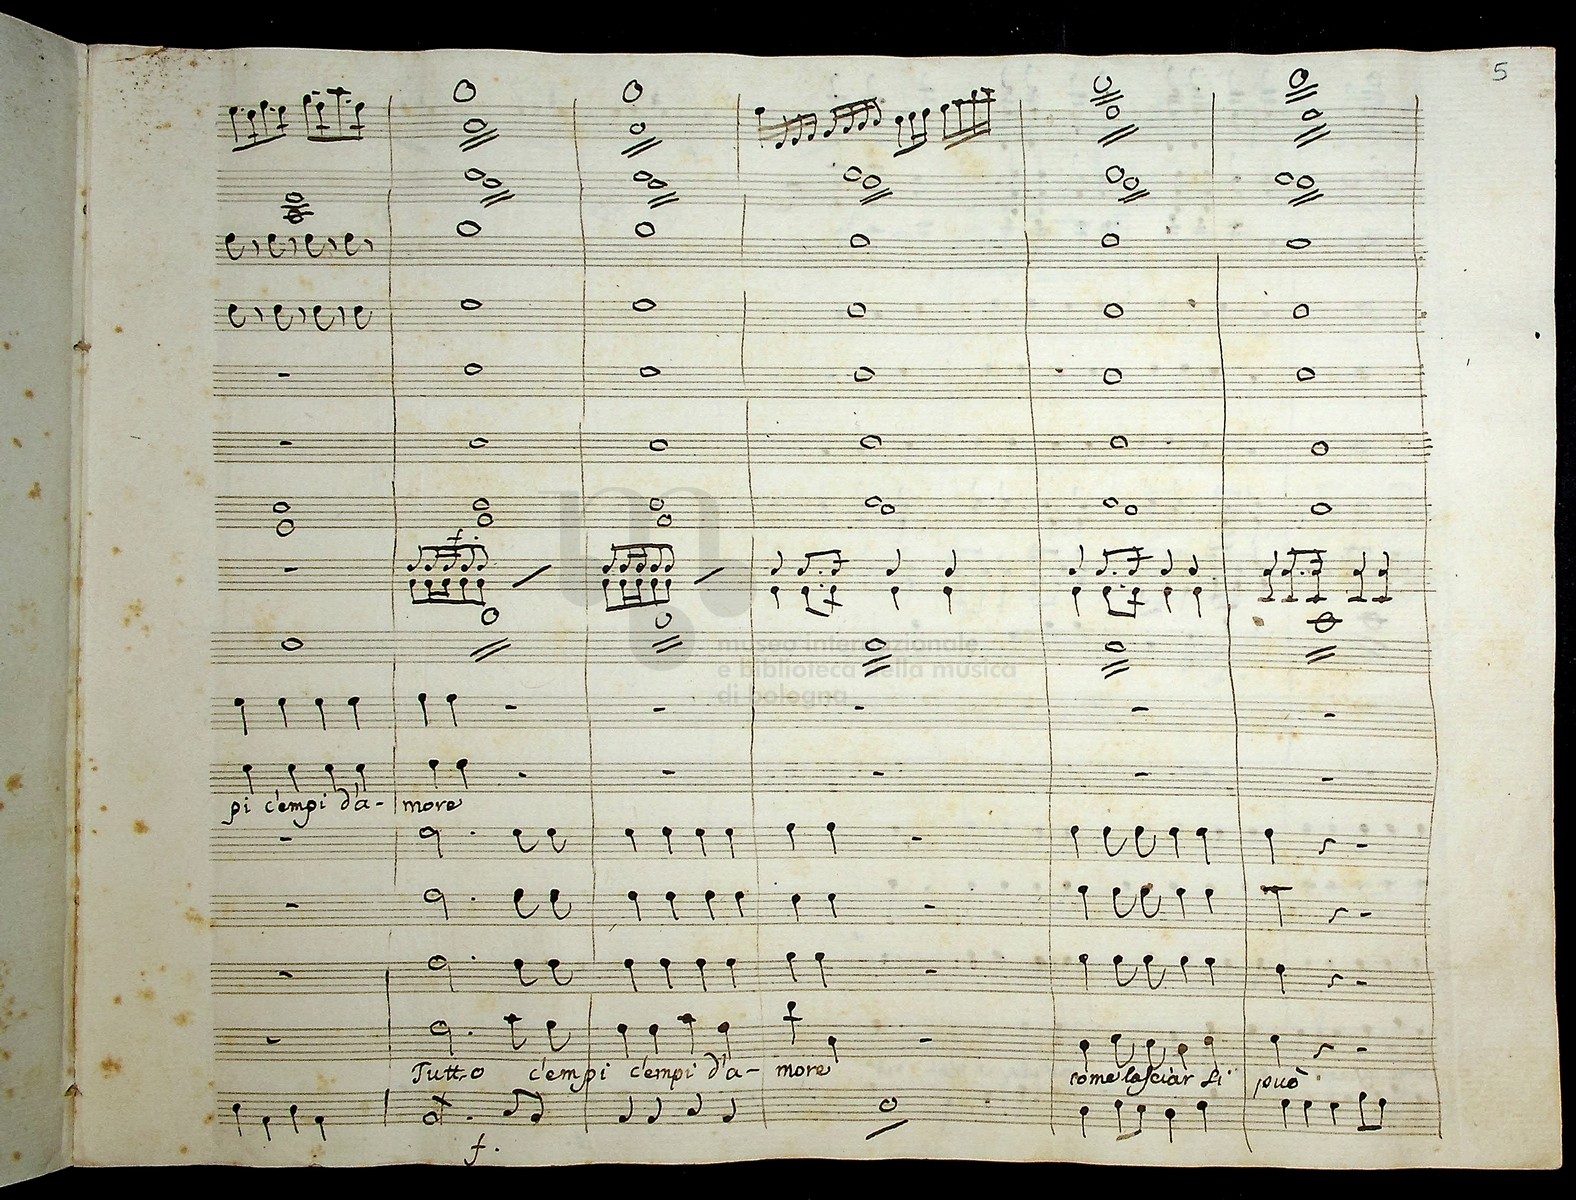 5
f.
museo internazionale
e biblioteca della musica
di bologna
pi c'empi d'a- more
Tutto c'empi c'empi d'a- more come lasciar si può
f.